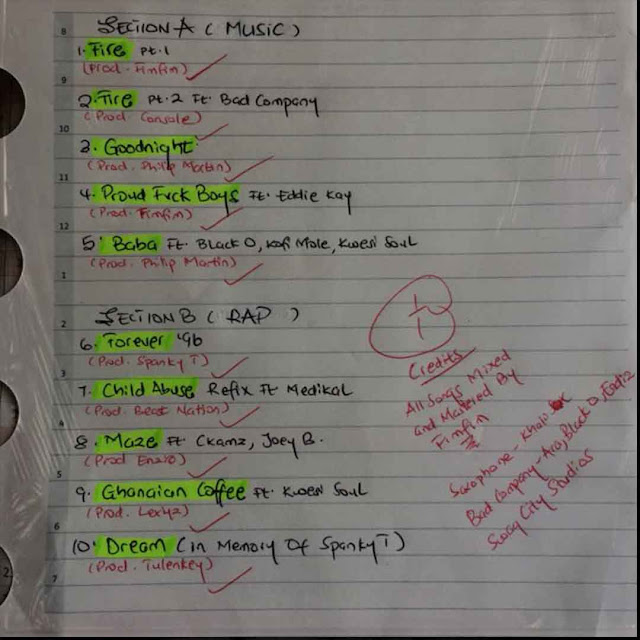 8 SECTION A (MUSIC)
1. Fire pt.1
(Prod. Finfin)
9
2. Fire pt.2 Ft. Bad Company
(Prod. Console)
10
3. Goodnight
(Prod. Philip Martin)
11
4. Proud Fvck Boys Ft. Eddie Kay
(Prod. Finfin)
12
5. Baba Ft. Black O, Kofi Mole, Kwesi Soul
(Prod. Philip Martin)
1
2 SECTION B (RAP)
6. Forever '96
(Prod. Spanky T)
3
7. Child Abuse Refix Ft Medikal
(Prod. Beat Nation)
4
8. Maze Ft Ckamz, Joey B.
(Prod
5
9. Ghanaian Coffee Ft. Kwesi Soul
(Prod. Lexyz)
6
10. Dream (In Memory Of Spanky T)
(Prod. Tulenkey)
7
1
1
Credits
All Songs Mixed
and Mastered By
Finfin
Saxophone -
Bad Company - Black O, Eddie
Swag City Studios
2